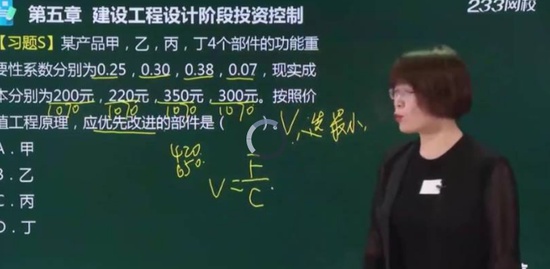 第五章 建设工程设计阶段投资控制
233网校
【习题S】某产品甲，乙，丙，丁4个部件的功能重
要性系数分别为0.25，0.30，0.38，0.07，现实成
本分别为200元，220元，350元，300元。按照价
1070 1070 1070 1070
值工程原理，应优先改进的部件是（
V，选最小
A．甲
420
650
B．乙
V=F/C
C．丙
D．丁